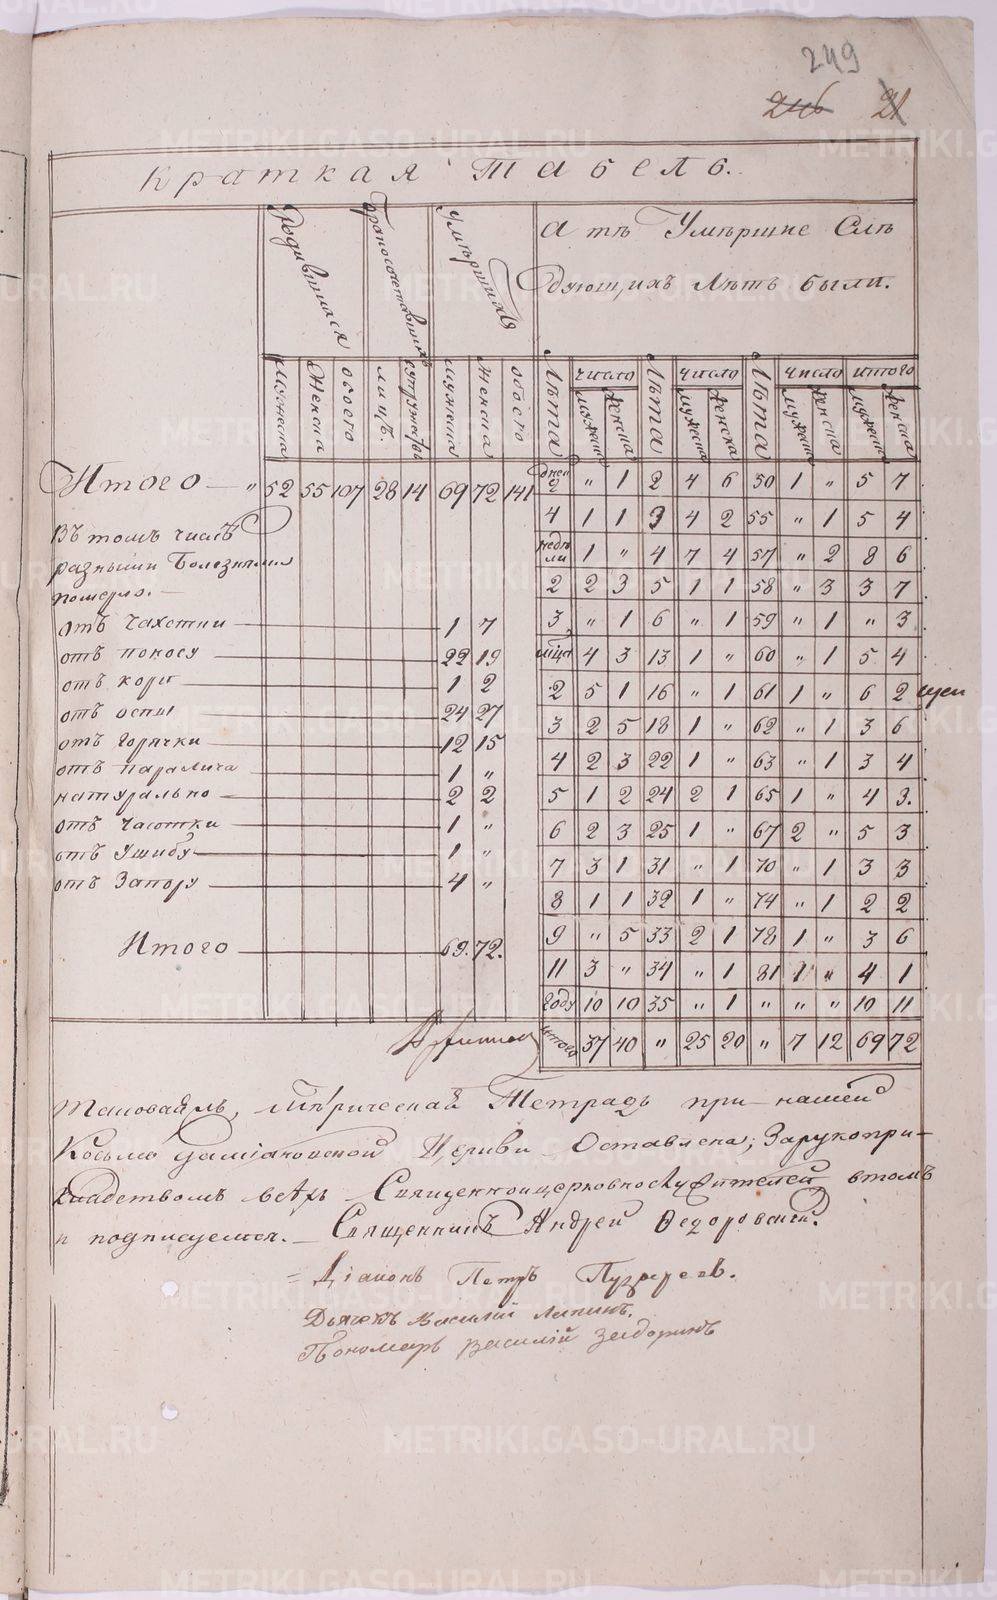 249
246 21
Краткая Табель.
Родившихся
Бракосочетавшихъ
Умѣршихъ
А тѣ Умѣршие Слѣ
дующихъ Лѣтъ были.
мужеска Женска обоего лицъ. супружествъ мужеска женска обоего Лѣта число Лѣта число Лѣта число итого
мужеска женска мужеска женска мужеска женска мужеска женска
Итого — " 52 55 107 28 14 69 72 141
дней 2 " 1 2 4 6 50 1 " 5 7
4 1 1 3 4 2 55 " 1 5 4
недѣли 1 " 4 7 4 57 " 2 8 6
2 2 3 5 1 1 58 " 3 3 7
3 " 1 6 " 1 59 " 1 " 3
мца 4 3 13 1 " 60 " 1 5 4
2 5 1 16 " 1 61 1 " 6 2
3 2 5 18 1 " 62 " 1 3 6
4 2 3 22 1 " 63 " 1 3 4
5 1 2 24 2 1 65 1 " 4 3.
6 2 3 25 1 " 67 2 " 5 3
7 3 1 31 " 1 70 " 1 3 3
8 1 1 32 1 " 74 " 1 2 2
9 " 5 33 2 1 78 1 " 3 6
11 3 " 34 " 1 81 1 " 4 1
году 10 10 35 " 1 " " " 10 11
итого 37 40 " 25 20 " 7 12 69 72
Въ томъ числѣ
разными Болезнями
померло. —
отъ Чахотки 1 7
отъ поносу 22 19
отъ кори 1 2
отъ оспы 24 27
отъ Горячки 12 15
отъ паралича 1 "
натурально 2 2
отъ Часотки 1 "
отъ Ушибу 1 "
отъ Запору 4 "
Итого 69. 72.
Таковаяжъ, Мѣтрическая Тетрадь при нашей
Косьмо Даміановской Церкви Оставлена; Зарукопри-
кладствомъ всѣхъ Священноицерковнослужителей втомъ
и подписуемся. — Священникъ Андрей Федоровский.
= Діаконъ Петръ
Дьячекъ Василій Лапинъ.
Пономарь Василій
METRIKI.GASO-URAL.RU